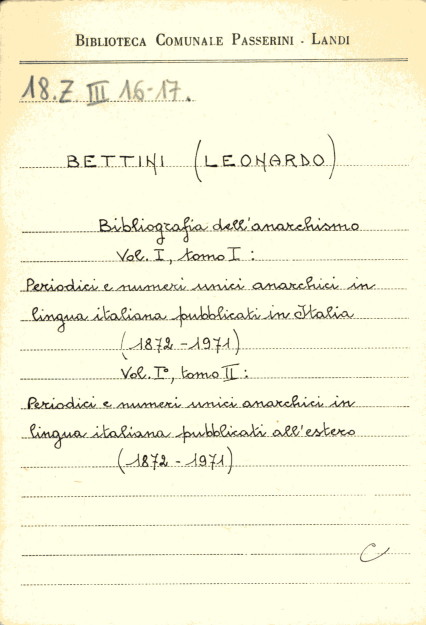 BIBLIOTECA COMUNALE PASSERINI - LANDI
18.Z III 16-17.
BETTINI (LEONARDO)
Bibliografia dell'anarchismo
Vol. I, tomo I :
Periodici e numeri unici anarchici in
lingua italiana pubblicati in Italia
(1872 - 1971)
Vol. I°, tomo II :
Periodici e numeri unici anarchici in
lingua italiana pubblicati all'estero
(1872 - 1971)
C